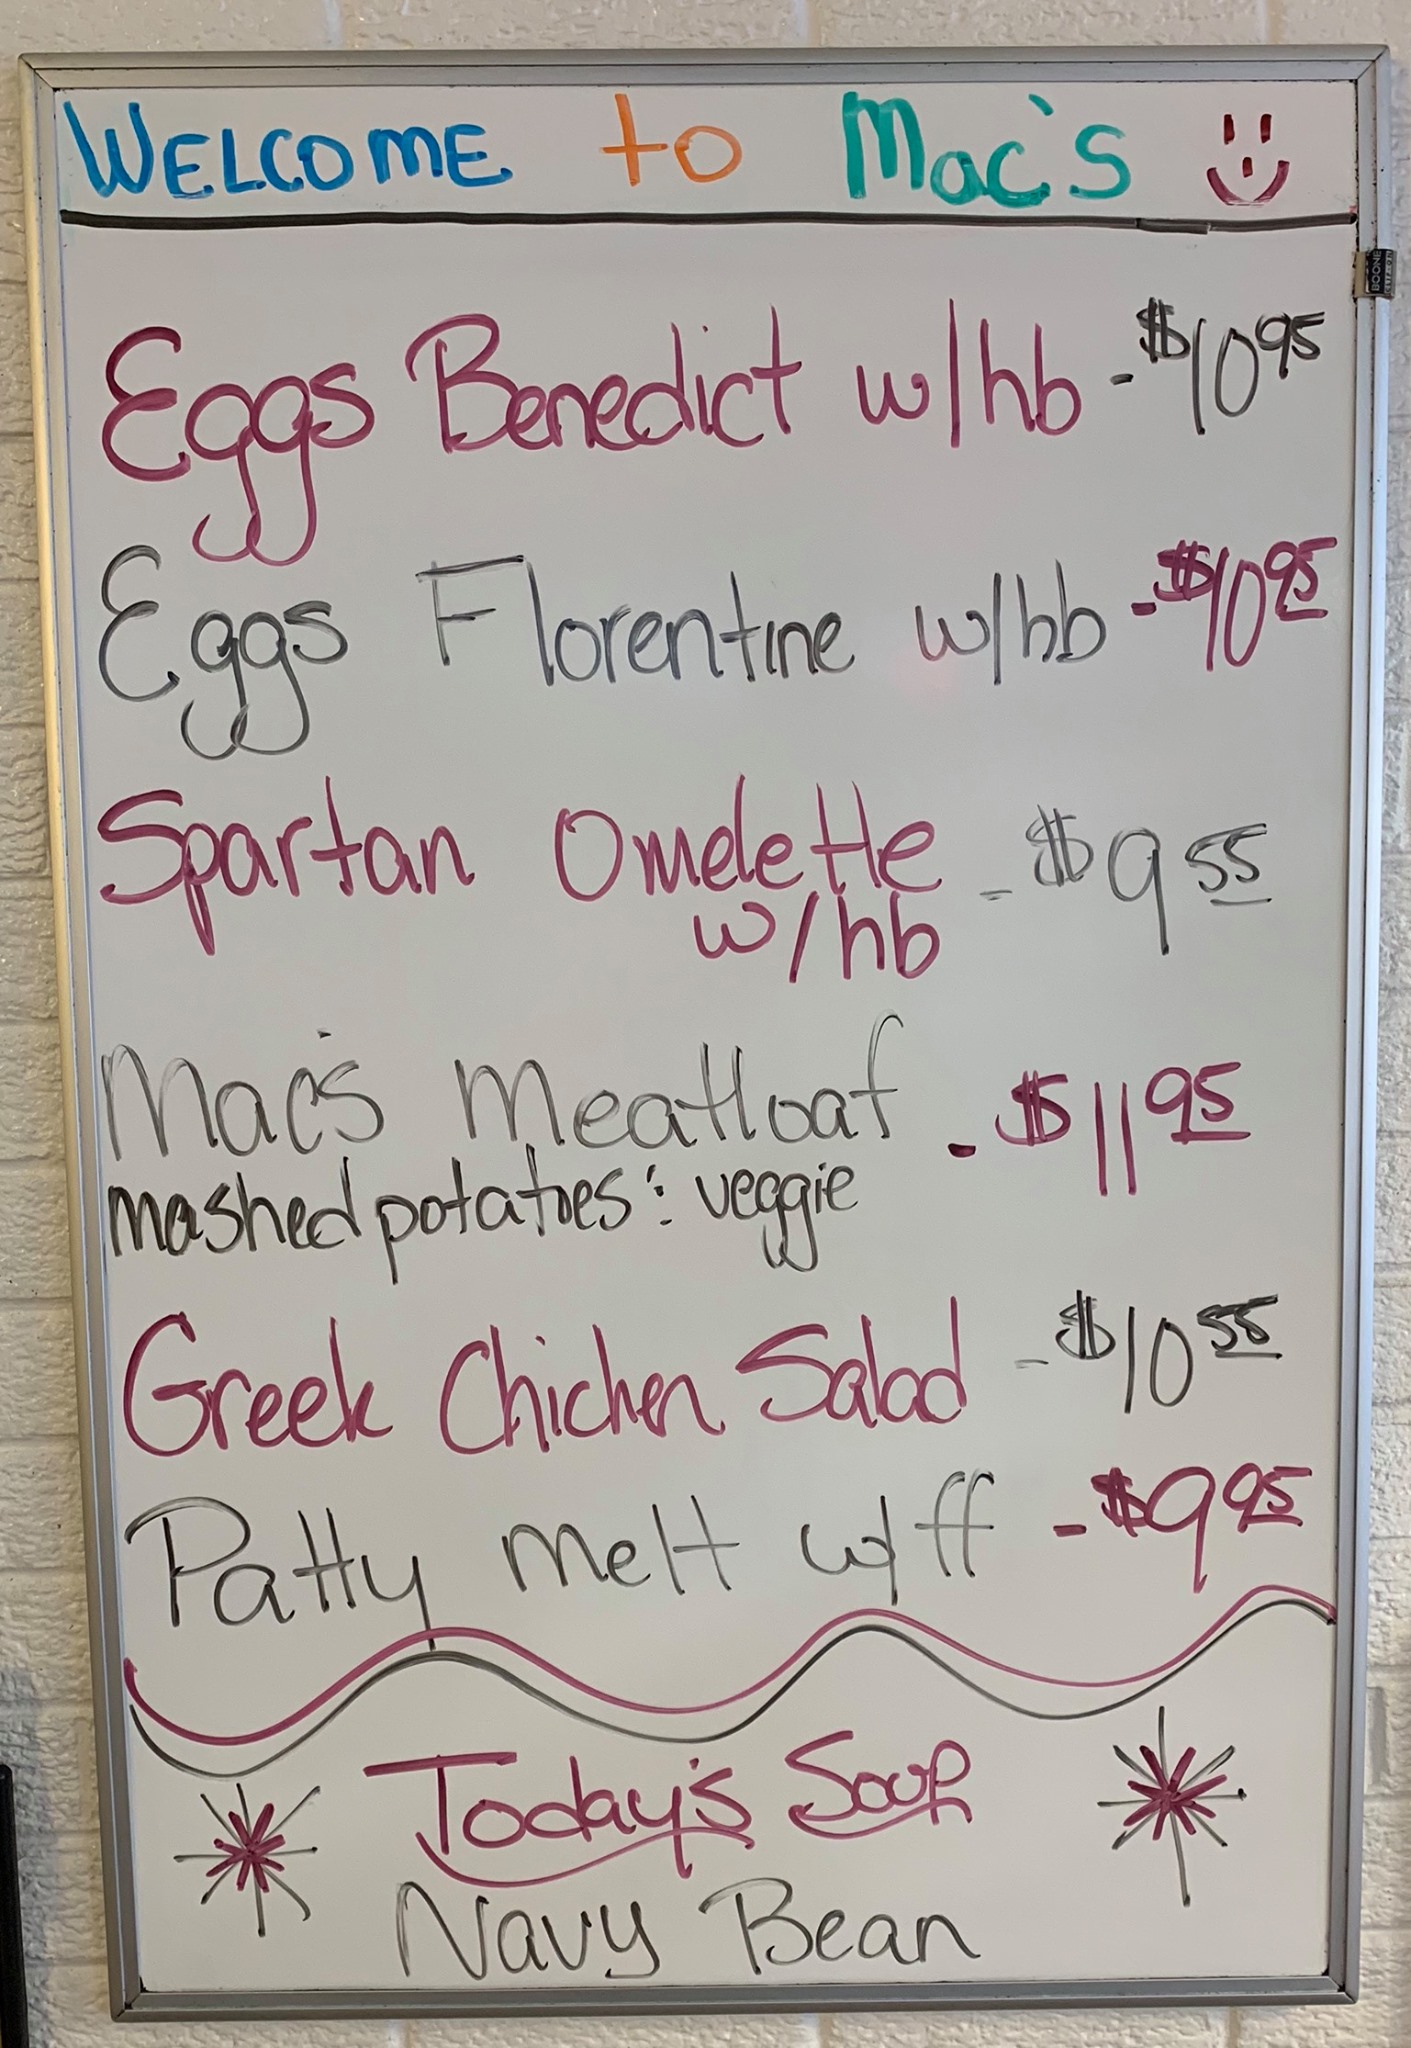 WELCOME to Mac's
Eggs Benedict w/hb - $10 95
Eggs Florentine w/hb - $10 95
Spartan Omelette - $9 55
w/hb
Mac's Meatloaf - $11 95
mashed potatoes : veggie
Greek Chicken Salad - $10 55
Patty melt w/ff - $9 95
Today's Soup
Navy Bean
BOONE